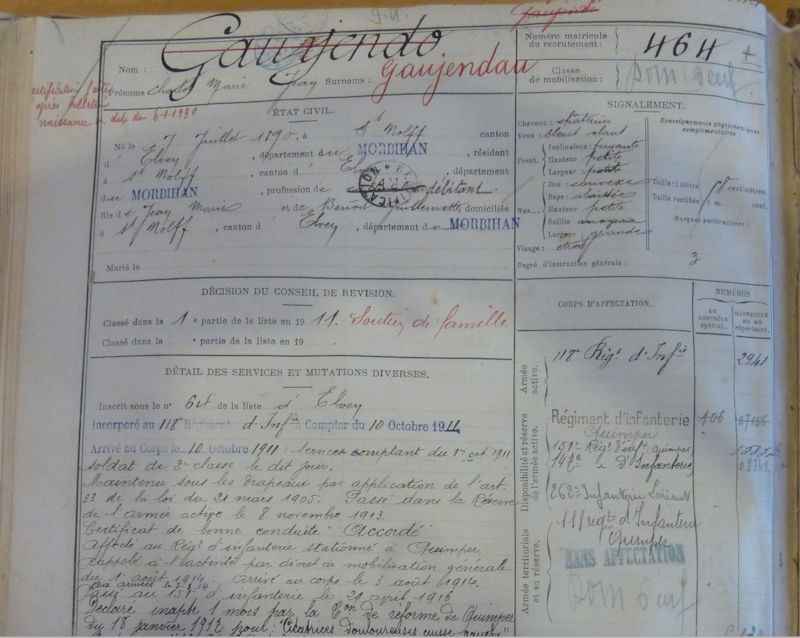 Gaujendo
Gaujendau
Nom :
Prénoms Charles Marie Jean Surnoms :
rectification faite
après bulletin
naissance en date du 6-1-1930
Numéro matricule
du recrutement : 464
Classe
de mobilisation :
ÉTAT CIVIL.
Né le 7 Juillet 1890, à St Nolff canton
d' Elven, département du MORBIHAN, résidant
à St Nolff canton d' Elven, département
du MORBIHAN, profession de débitant
fils de Jean Marie et de Benoit domiciliés
à St Nolff, canton d' Elven, département du MORBIHAN
Marié le
SIGNALEMENT.
Cheveux : chatains
Yeux :
Front. Inclinaison : fuyante
Hauteur petite
Largeur petite
Nez Dos : convexe
Base : abaissée
Hauteur petite
Saillie moyenne
Largeur : grande
Visage : étroit
Renseignements physionomiques
complémentaires :
Taille : 1 mètre 58 centimètres.
Taille rectifiée : 1 m. cent.
Marques particulières :
Degré d'instruction générale : 3
DÉCISION DU CONSEIL DE REVISION.
Classé dans la 1e partie de la liste en 1911. Soutien de famille
Classé dans la e partie de la liste en 19
DÉTAIL DES SERVICES ET MUTATIONS DIVERSES.
Inscrit sous le no 64 de la liste d' Elven
Incorporé au 118e Régiment d'Infie à Compter du 10 Octobre 1911
Arrivé au Corps le 10 Octobre 1911, services comptant du 1er oct 1911
soldat de 2e classe le dit jour.
Maintenu sous les drapeaux par application de l'art.
33 de la loi du 21 mars 1905. Passé dans la Réserve
de l'armée active le 8 novembre 1913.
Certificat de bonne conduite "Accordé"
Affecté au Régt d'infanterie stationné à Quimper
rappelé à l'activité par décret de mobilisation générale
du 1 août 1914. arrivé au corps le 3 août 1914.
Passé au 151e d'infanterie le 21 avril 1916
Déclaré inapte 1 mois par la Con de réforme de Quimper
du 18 janvier 1917 pour : "Cicatrices douloureuses cuisse gauche"
CORPS D'AFFECTATION.
NUMÉROS
AU
CONTRÔLE
spécial.
MATRICULE
ou au
répertoire.
Armée
active.
118e Régt d'Infie 2941
Disponibilité et réserve
de l'armée active.
Régiment d'infanterie 106 07156
Quimper
151e Régt d'inf Quimper
147e d° d'Infanterie
262e Infanterie Lorient
Armée territoriale
et sa réserve.
118 regt d'Infanterie
Quimper
SANS AFFECTATION